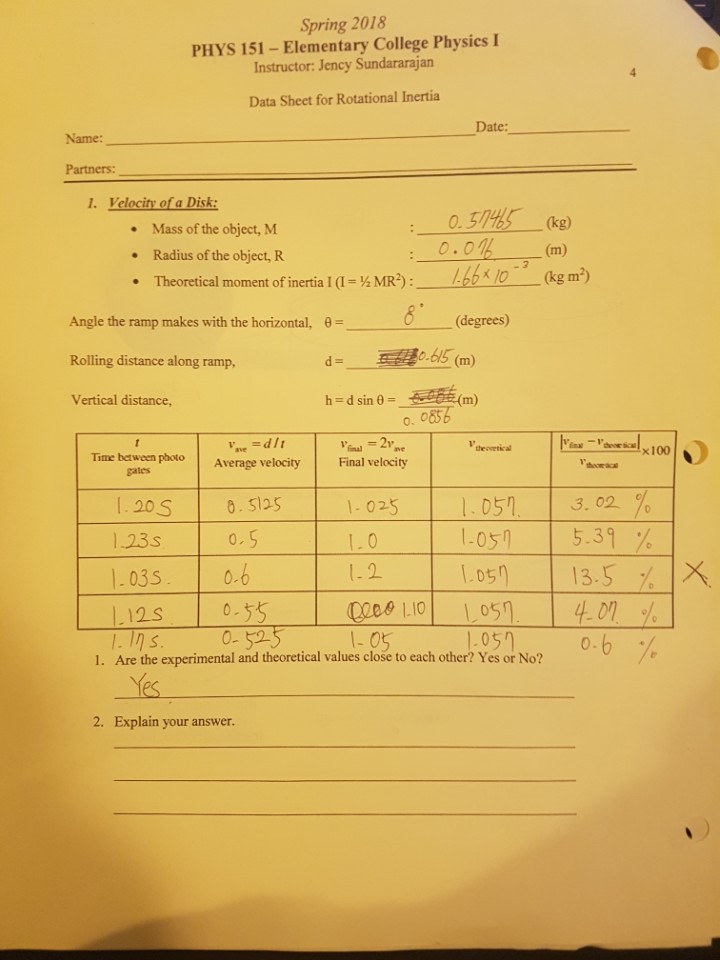 Spring 2018
PHYS 151 – Elementary College Physics I
Instructor: Jency Sundararajan
4
Data Sheet for Rotational Inertia
Name: Date:
Partners:
1. Velocity of a Disk:
• Mass of the object, M : 0.57465 (kg)
• Radius of the object, R : 0.076 (m)
• Theoretical moment of inertia I (I = ½ MR²) : 1.66 × 10⁻³ (kg m²)
Angle the ramp makes with the horizontal, θ = 8° (degrees)
Rolling distance along ramp, d = 0.615 (m)
Vertical distance, h = d sin θ = (m)
0.0856
t Time between photo gates v ave = d / t Average velocity v final = 2v ave Final velocity v theoretical |v final − v theoretical| / v theoretical ×100
1.20 S 0.5125 1.025 1.057. 3.02 %
1.23 s 0.5 1.0 1.057 5.39 %
1.03 s. 0.6 1.2 1.057 13.5 % X
1.12 s 0.55 1.10 1.057. 4.07 %
1.17 s. 0.525 1.05 1.057 0.6 %
1. Are the experimental and theoretical values close to each other? Yes or No?
Yes
2. Explain your answer.